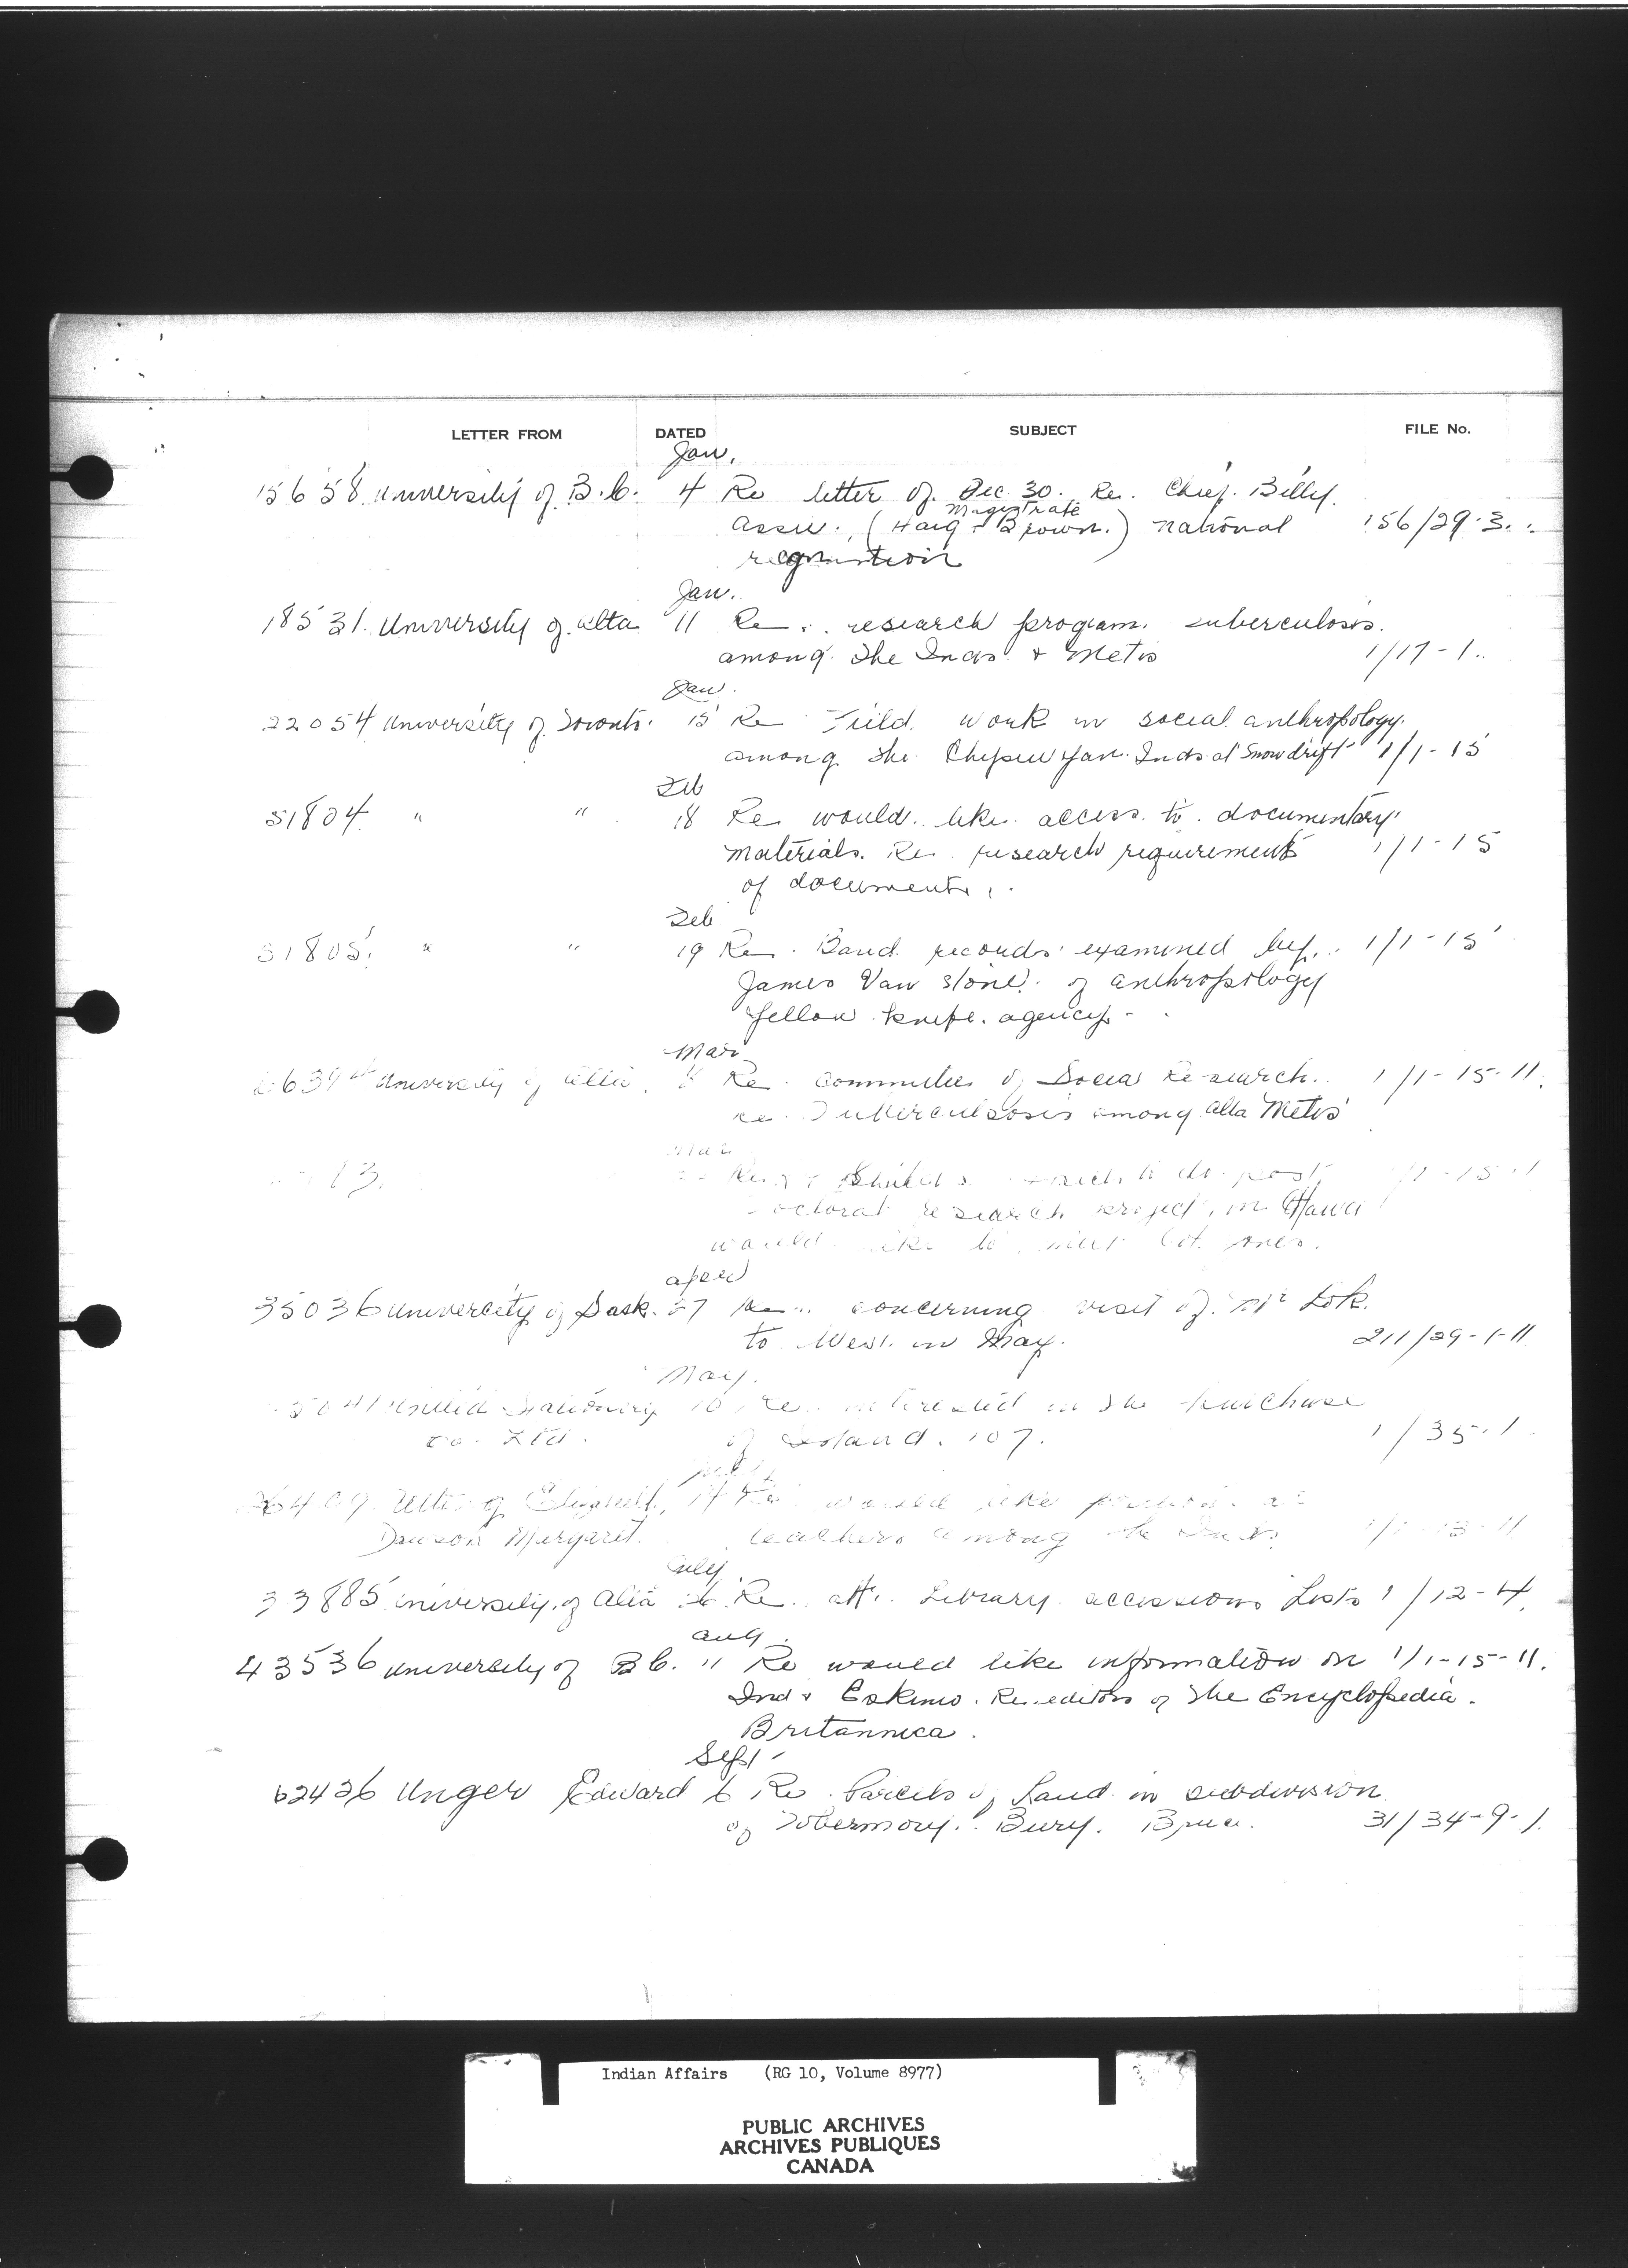 LETTER FROM DATED SUBJECT FILE No.
Jan.
15658 University of B.C. 4 Re letter of Dec. 30. Re. Chief. Billy
Magistrate
Assu. (Haig + Brown.) national 156/29-3.
recognition
Jan.
18531. University of Alta 11 Re research program. tuberculosis.
among the Inds. + Metis 1/17-1.
Jan.
22054 University of Toronto. 15 Re Field work in social anthropology
among the Chepewyan Inds at Snowdrift 1/1-15
Feb
31804 " " 18 Re would like access to documentary
materials. Re. research requirements 1/1-15
of documents.
Feb
31805. " " 19 Re. Band records examined by 1/1-15
James Van Stone. of anthropology
Yellow knife. agency-
Mar
University of Alta. Re. Committee of Social Research. 1/1-15-11.
re. Tuberculosis among Alta Metis
13. to do post
doctorat research project, in Ottawa
would like to meet Col. Jones.
April
35036 University of Sask. 27 Re concerning visit of Mr
to West. in May. 211/29-1-11
May.
United Stationery 10 re. interested in the purchase
co. Ltd. of Island. 107. 1/35-1
Elizabeth, would like
Dawson Margaret. teachers among the Inds.
July
33885 University of Alta Re. att. Library accessions Lists 1/12-4.
Aug.
43536 University of BC. 11 Re would like information on 1/1-15-11.
Ind + Eskimo. Re. editors of the Encyclopedia.
Britannica.
Sept
62426 Unger Edward 6 Re. Parcels of Land in subdivision
of Tobermory. Bury. Bruce. 31/34-9-1.
Indian Affairs (RG 10, Volume 8977)
PUBLIC ARCHIVES
ARCHIVES PUBLIQUES
CANADA